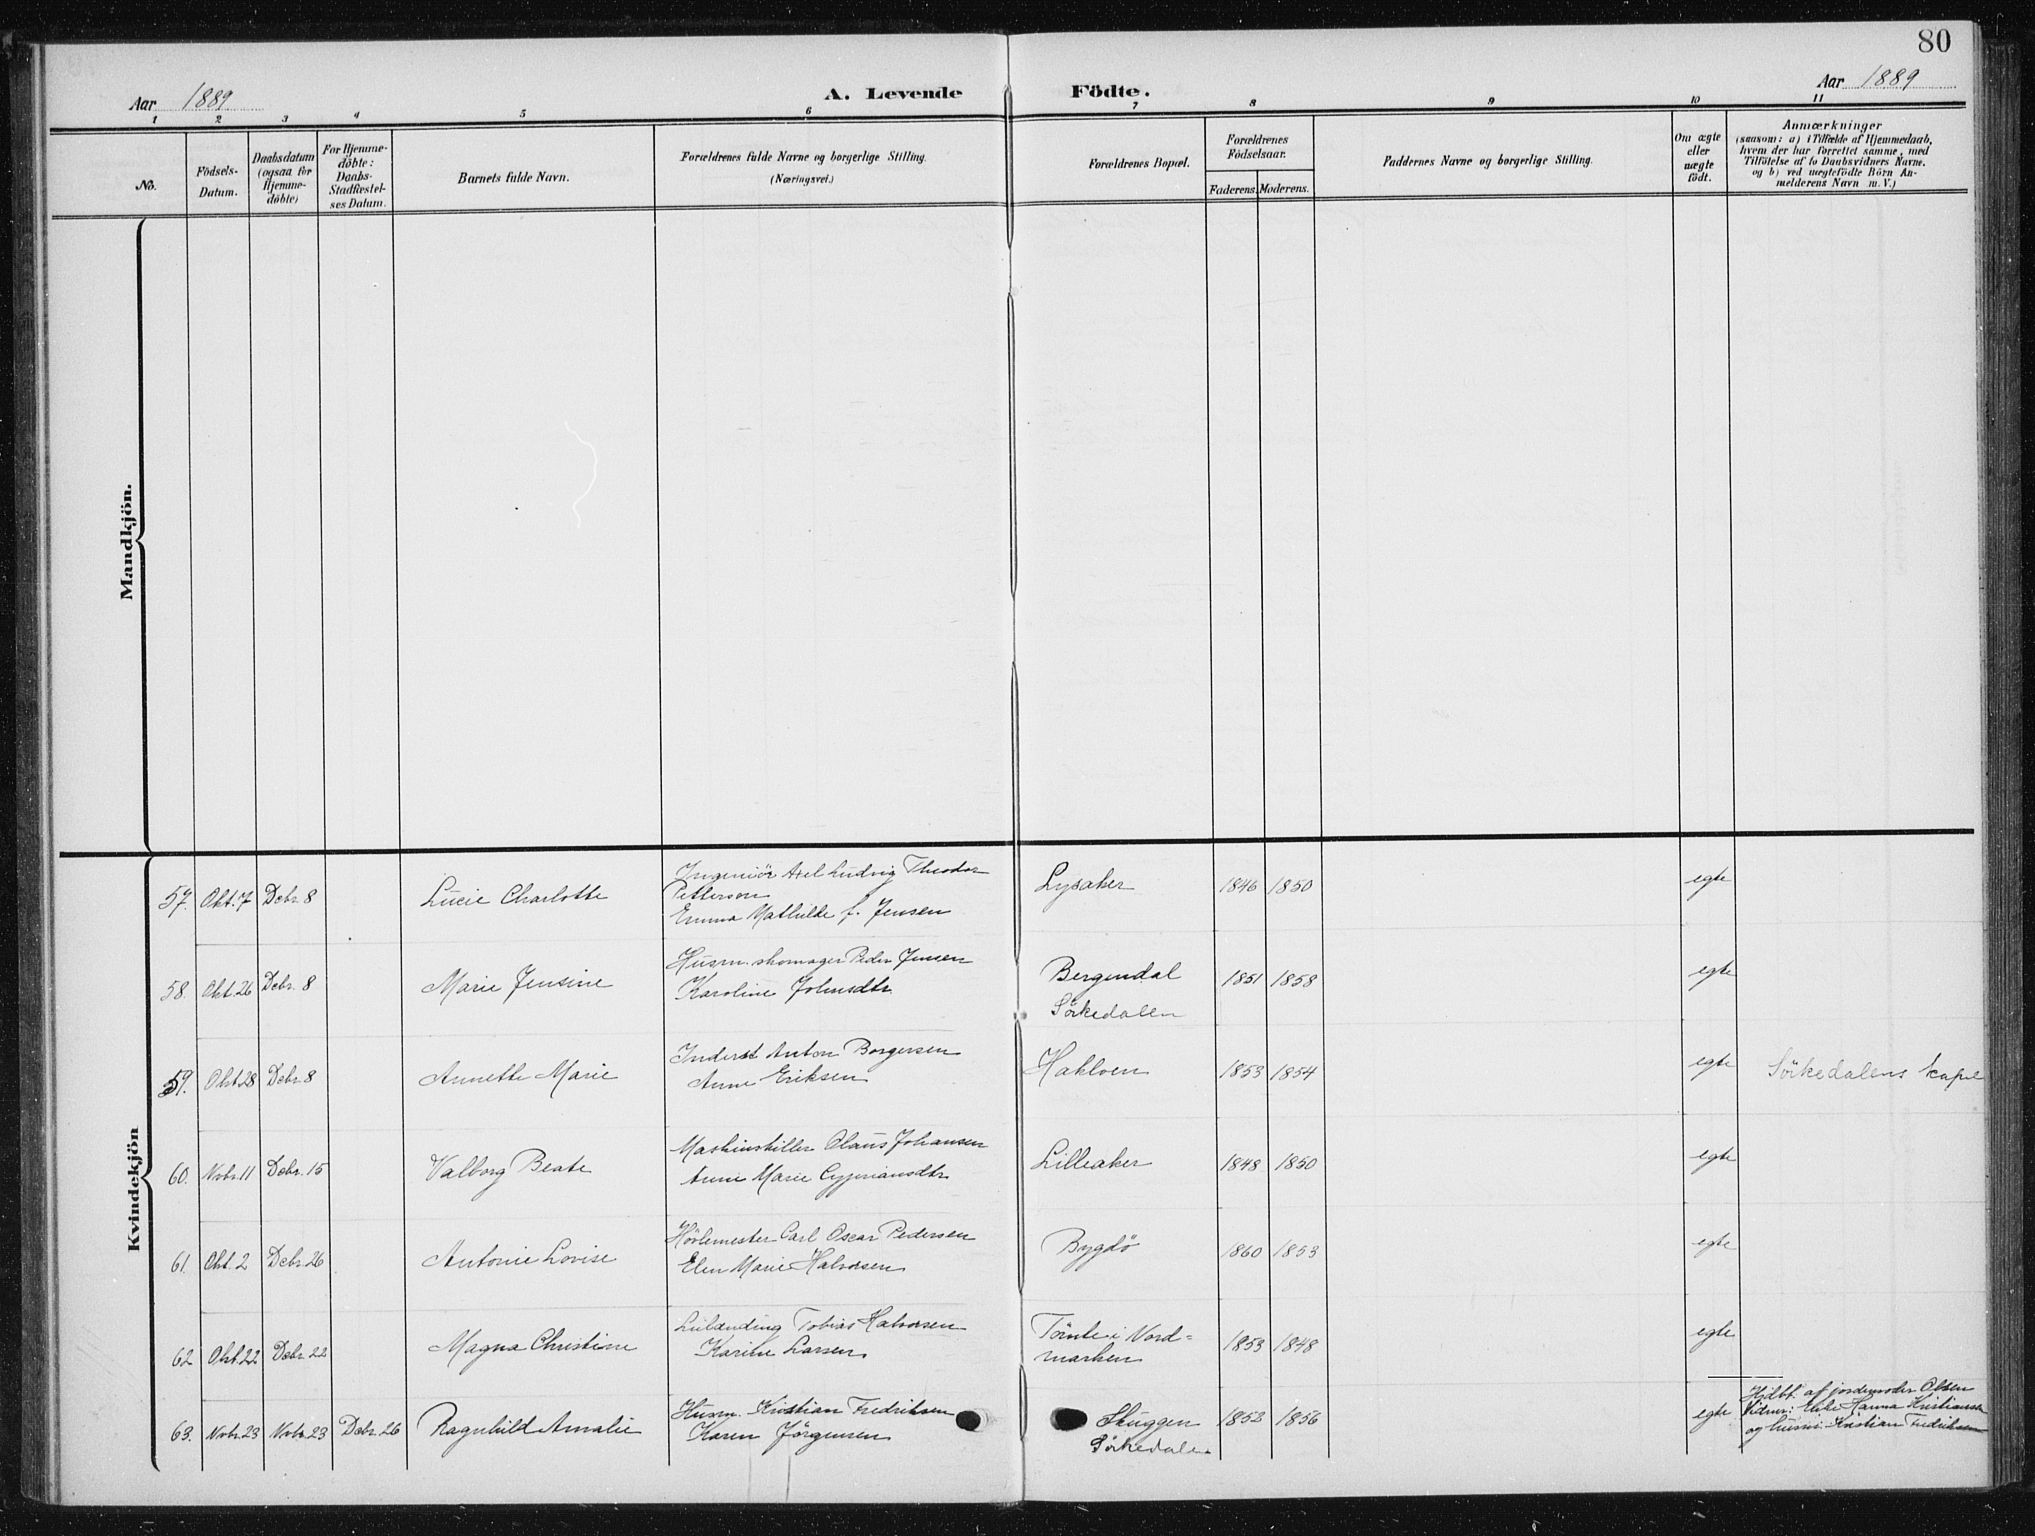 80
Aar 1889 A. Levende Födte. Aar 1889
1 2 3 4 5 6 7 8 9 10 11
No.
Födsels-
Datum.
Daabsdatum
(ogsaa for
Hjemme-
döbte)
For Hjemme-
döbte:
Daabs-
Stadfæstel-
ses Datum.
Barnets fulde Navn.
Forældrenes fulde Navne og borgerlige Stilling.
(Næringsvei.)
Forældrenes Bopæl.
Forældrenes
Födselsaar.
Faderens. Moderens.
Faddernes Navne og borgerlige Stilling.
Om ægte
eller
uægte
födt.
Anmærkninger
(saasom: a) i Tilfælde af Hjemmedaab,
hvem der har forrettet samme, med
Tilföielse af to Daabsvidners Navne.
og b) ved uægtefödte Börn An-
melderens Navn m. V.)
Mandkjön.
Kvindekjön
57. Okt. 7 Debr. 8 Lucie Charlotte
Ingeniör Axel Ludvig Theodor
Petterson
Emma Mathilde f. Jensen
Lysaker 1846 1850 egte
58. Okt. 26 Debr. 8 Marie Jensine
Husm. skomager Peder Jensen
Karoline Johnsdtr
Bergendal
Sörkedalen
1851 1858 egte
59. Okt. 28 Debr. 8 Annette Marie
Inderst Anton Borgersen
Anne Eriksen
Hakloen 1853 1854 egte Sörkedalens kapel
60. Nvbr. 11 Debr. 15 Valborg Beate
Maskinstiller Olaus Johansen
Anne Marie Cypriansdtr
Lilleaker 1848 1850 egte
61. Okt. 2 Debr. 26 Antonie Lovise
Hövlemester Carl Oscar Pedersen
Elen Marie Halvorsen
Bygdö 1860 1853 egte
62 Okt. 22 Debr. 22 Magna Christine
Tobias Halvorsen
Karine Larsen
Tömte i Nord=
marken
1853 1848 egte
63. Nvbr. 23 Nvbr. 23 Debr. 26 Ragnhild Amalie
Husm. Kristian Fredriksen
Karen Jörgensen
Skuggen
Sörkedalen
1852 1856 egte
Hjdbt. af jordemoder Olsen
Vidner: Hanna Kristiansen
og husm. Kristian Fredriksen